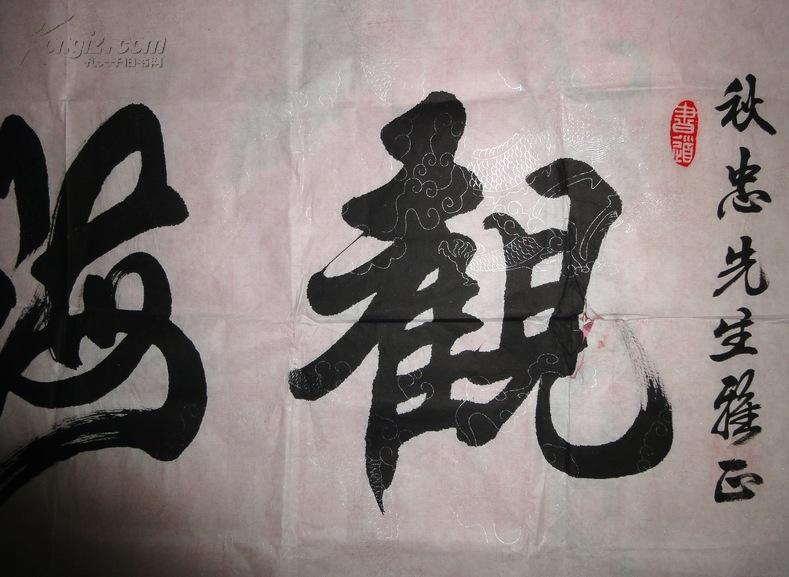 秋忠先生雅正
書道
觀海
Kongfz.com
孔夫子旧书网